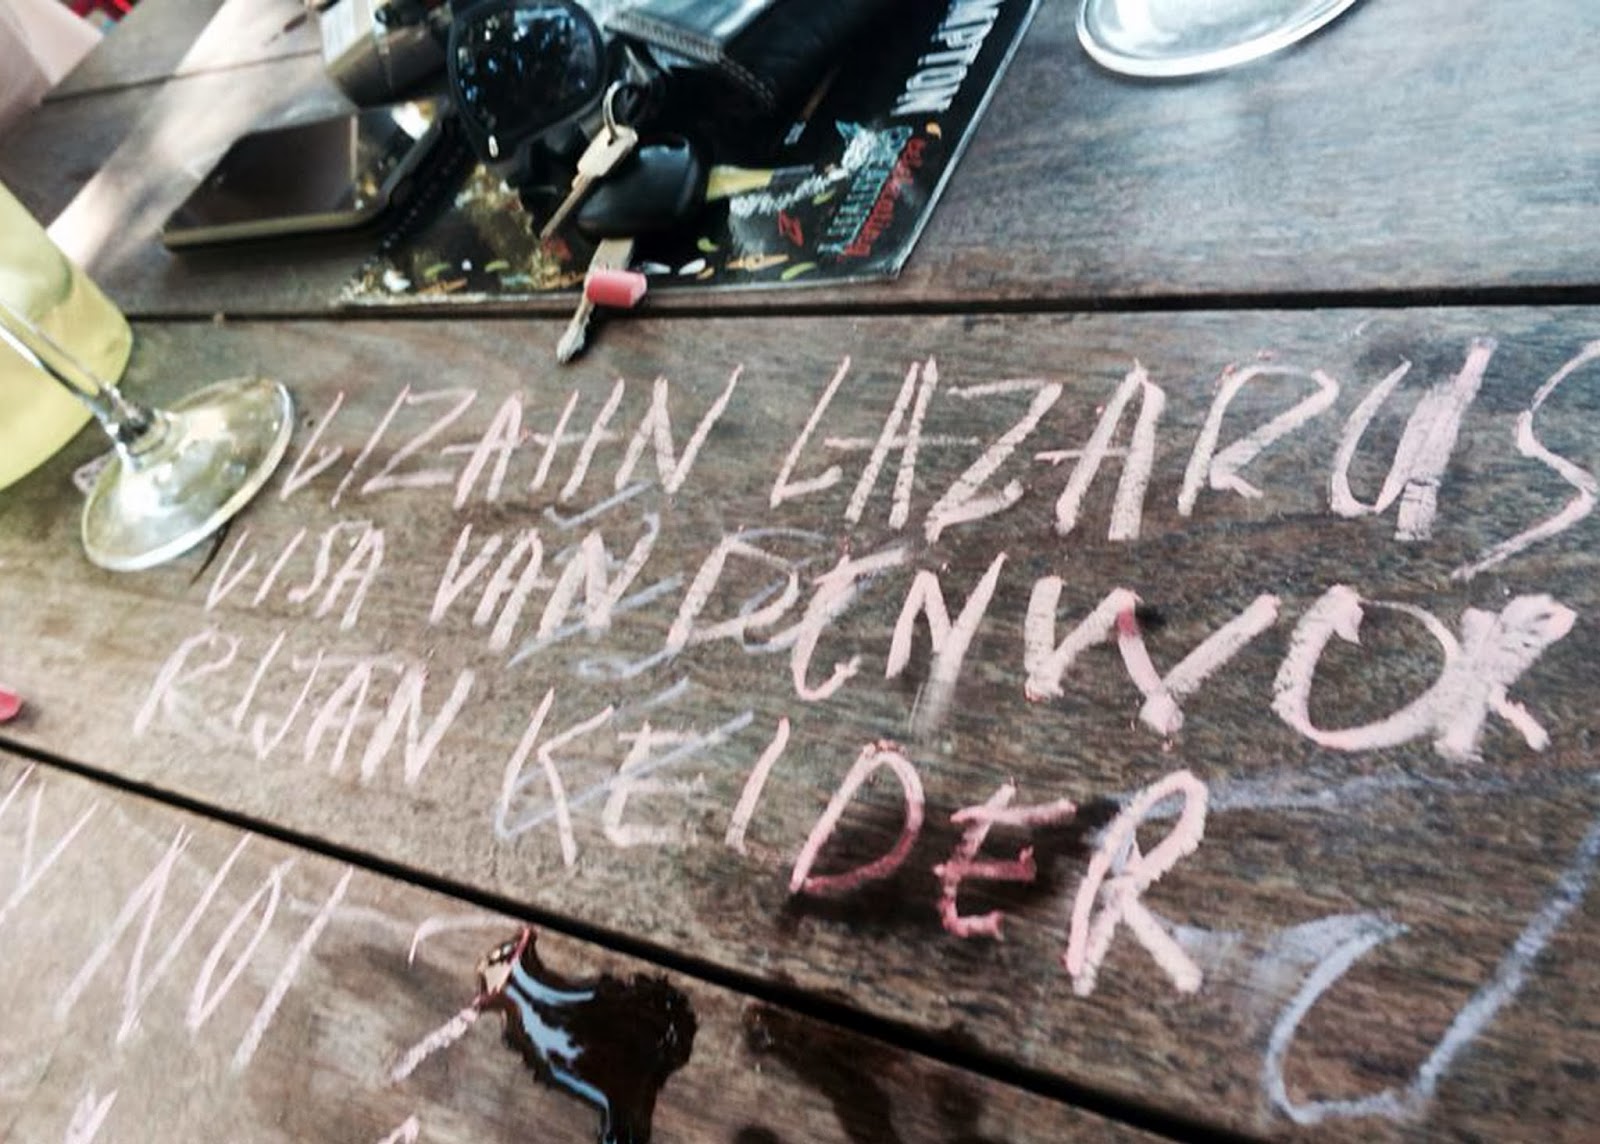 MPTON
LIZAHN LAZARUS
LISA VAN DEN WOR
RIJAN KEIDER
NOT